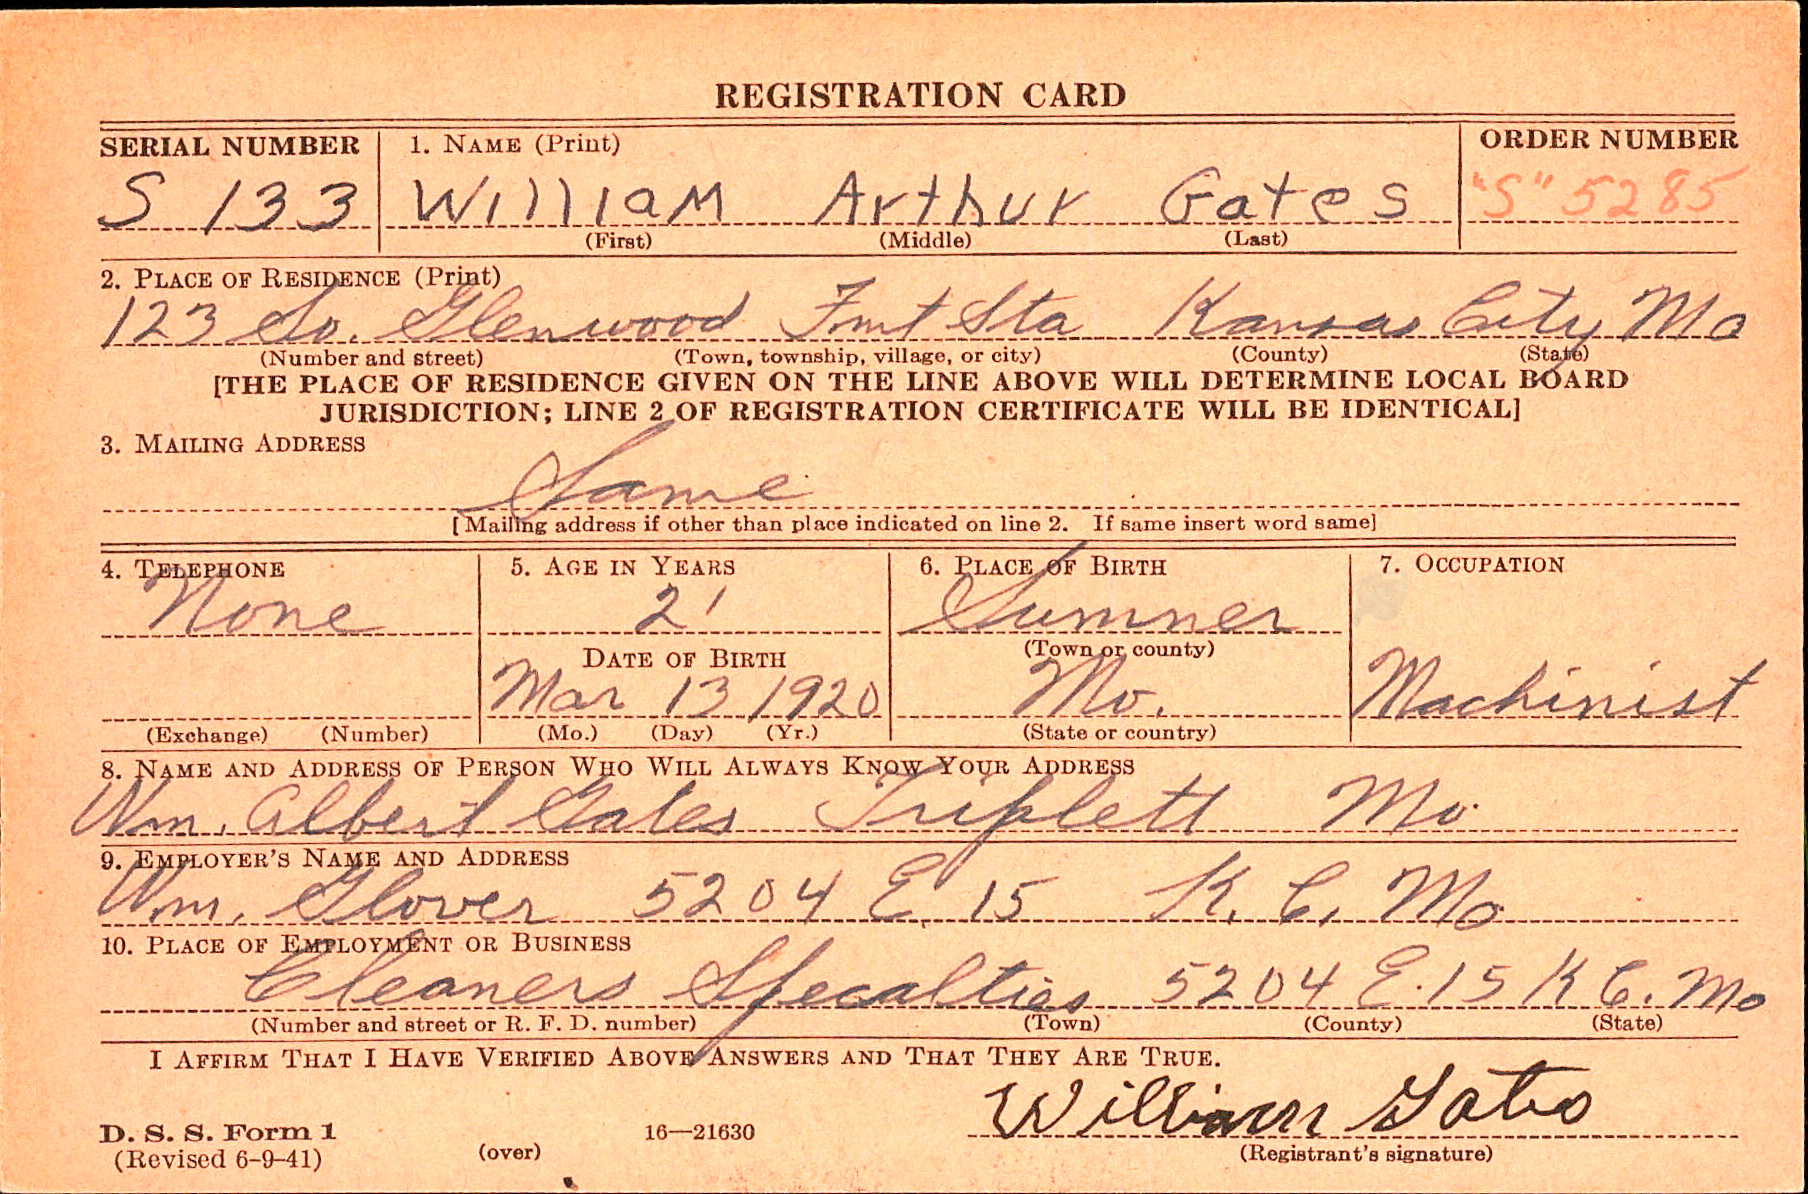 REGISTRATION CARD
SERIAL NUMBER 1. NAME (Print) ORDER NUMBER
S 133 William Arthur Gates "S" 5285
(First) (Middle) (Last)
2. PLACE OF RESIDENCE (Print)
123 So. Glenwood Fmt Sta Kansas City Mo
(Number and street) (Town, township, village, or city) (County) (State)
[THE PLACE OF RESIDENCE GIVEN ON THE LINE ABOVE WILL DETERMINE LOCAL BOARD
JURISDICTION; LINE 2 OF REGISTRATION CERTIFICATE WILL BE IDENTICAL]
3. MAILING ADDRESS
Same
[Mailing address if other than place indicated on line 2. If same insert word same]
4. TELEPHONE 5. AGE IN YEARS 6. PLACE OF BIRTH 7. OCCUPATION
None 21 Sumner
DATE OF BIRTH (Town or county)
Mar 13 1920 Mo. Machinist
(Exchange) (Number) (Mo.) (Day) (Yr.) (State or country)
8. NAME AND ADDRESS OF PERSON WHO WILL ALWAYS KNOW YOUR ADDRESS
Wm. Albert Gates Triplett Mo.
9. EMPLOYER'S NAME AND ADDRESS
Wm. Glover 5204 E. 15 K. C. Mo
10. PLACE OF EMPLOYMENT OR BUSINESS
Cleaners Specalties 5204 E. 15 K C. Mo
(Number and street or R. F. D. number) (Town) (County) (State)
I AFFIRM THAT I HAVE VERIFIED ABOVE ANSWERS AND THAT THEY ARE TRUE.
William Gates
D. S. S. Form 1 16—21630
(Revised 6-9-41) (over) (Registrant's signature)